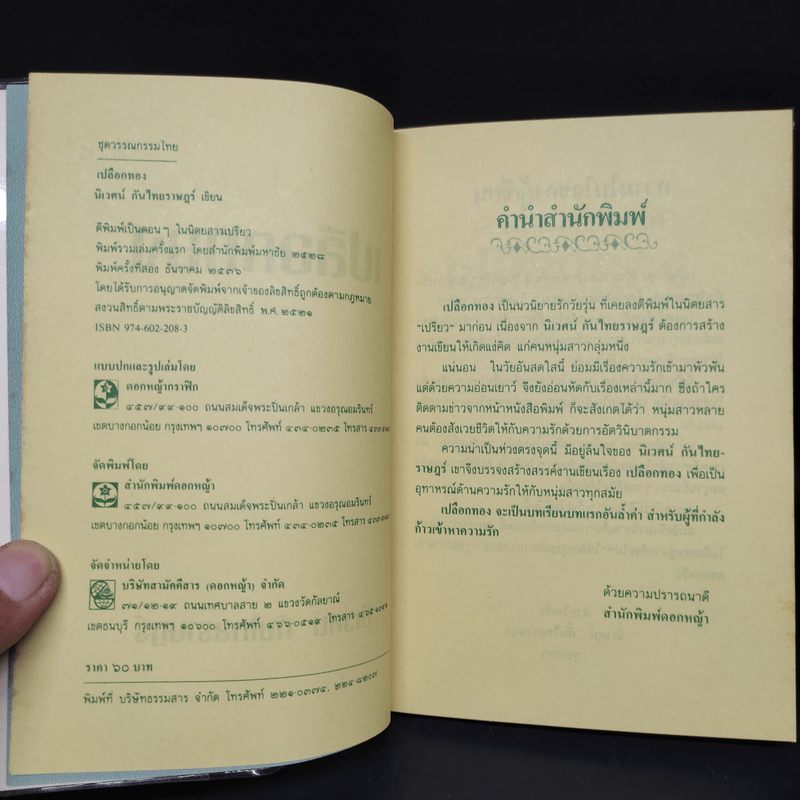 ชุดวรรณกรรมไทย
เปลือกทอง
นิเวศน์ กันไทยราษฎร์ เขียน
ตีพิมพ์เป็นตอนๆ ในนิตยสารเปรียว
พิมพ์รวมเล่มครั้งแรก โดยสำนักพิมพ์มหาชัย ๒๕๒๘
พิมพ์ครั้งที่สอง ธันวาคม ๒๕๓๖
โดยได้รับการอนุญาตจัดพิมพ์จากเจ้าของลิขสิทธิ์ถูกต้องตามกฎหมาย
สงวนสิทธิ์ตามพระราชบัญญัติลิขสิทธิ์ พ.ศ. ๒๕๒๑
ISBN 974-602-208-3
แบบปกและรูปเล่มโดย
ดอกหญ้ากราฟิก
๔๕๗/๙๙-๑๐๐ ถนนสมเด็จพระปิ่นเกล้า แขวงอรุณอมรินทร์
เขตบางกอกน้อย กรุงเทพฯ ๑๐๗๐๐ โทรศัพท์ ๔๓๔-๐๒๓๕ โทรสาร
จัดพิมพ์โดย
สำนักพิมพ์ดอกหญ้า
๔๕๗/๙๙-๑๐๐ ถนนสมเด็จพระปิ่นเกล้า แขวงอรุณอมรินทร์
เขตบางกอกน้อย กรุงเทพฯ ๑๐๗๐๐ โทรศัพท์ ๔๓๔-๐๒๓๕ โทรสาร
จัดจำหน่ายโดย
บริษัทสามัคคีสาร (ดอกหญ้า) จำกัด
๗๑/๑๒-๑๙ ถนนเทศบาลสาย ๒ แขวงวัดกัลยาณ์
เขตธนบุรี กรุงเทพฯ ๑๐๖๐๐ โทรศัพท์ ๔๖๖-๐๕๑๙ โทรสาร
ราคา ๖๐ บาท
พิมพ์ที่ บริษัทธรรมสาร จำกัด โทรศัพท์ ๒๒๑-๐๓๗๔, ๒๒๔-๘๒๐๗
คำนำสำนักพิมพ์
เปลือกทอง เป็นนวนิยายรักวัยรุ่น ที่เคยลงตีพิมพ์ในนิตยสาร
“เปรียว” มาก่อน เนื่องจาก นิเวศน์ กันไทยราษฎร์ ต้องการสร้าง
งานเขียนให้เกิดแง่คิด แก่คนหนุ่มสาวกลุ่มหนึ่ง
แน่นอน ในวัยอันสดใสนี้ ย่อมมีเรื่องความรักเข้ามาพัวพัน
แต่ด้วยความอ่อนเยาว์ จึงยังอ่อนหัดกับเรื่องเหล่านี้มาก ซึ่งถ้าใคร
ติดตามข่าวจากหน้าหนังสือพิมพ์ ก็จะสังเกตได้ว่า หนุ่มสาวหลาย
คนต้องสังเวยชีวิตให้กับความรักด้วยการอัตวินิบาตกรรม
ความน่าเป็นห่วงตรงจุดนี้ มีอยู่ล้นใจของ นิเวศน์ กันไทย-
ราษฎร์ เขาจึงบรรจงสร้างสรรค์งานเขียนเรื่อง เปลือกทอง เพื่อเป็น
อุทาหรณ์ด้านความรักให้กับหนุ่มสาวทุกสมัย
เปลือกทอง จะเป็นบทเรียนบทแรกอันล้ำค่า สำหรับผู้ที่กำลัง
ก้าวเข้าหาความรัก
ด้วยความปรารถนาดี
สำนักพิมพ์ดอกหญ้า